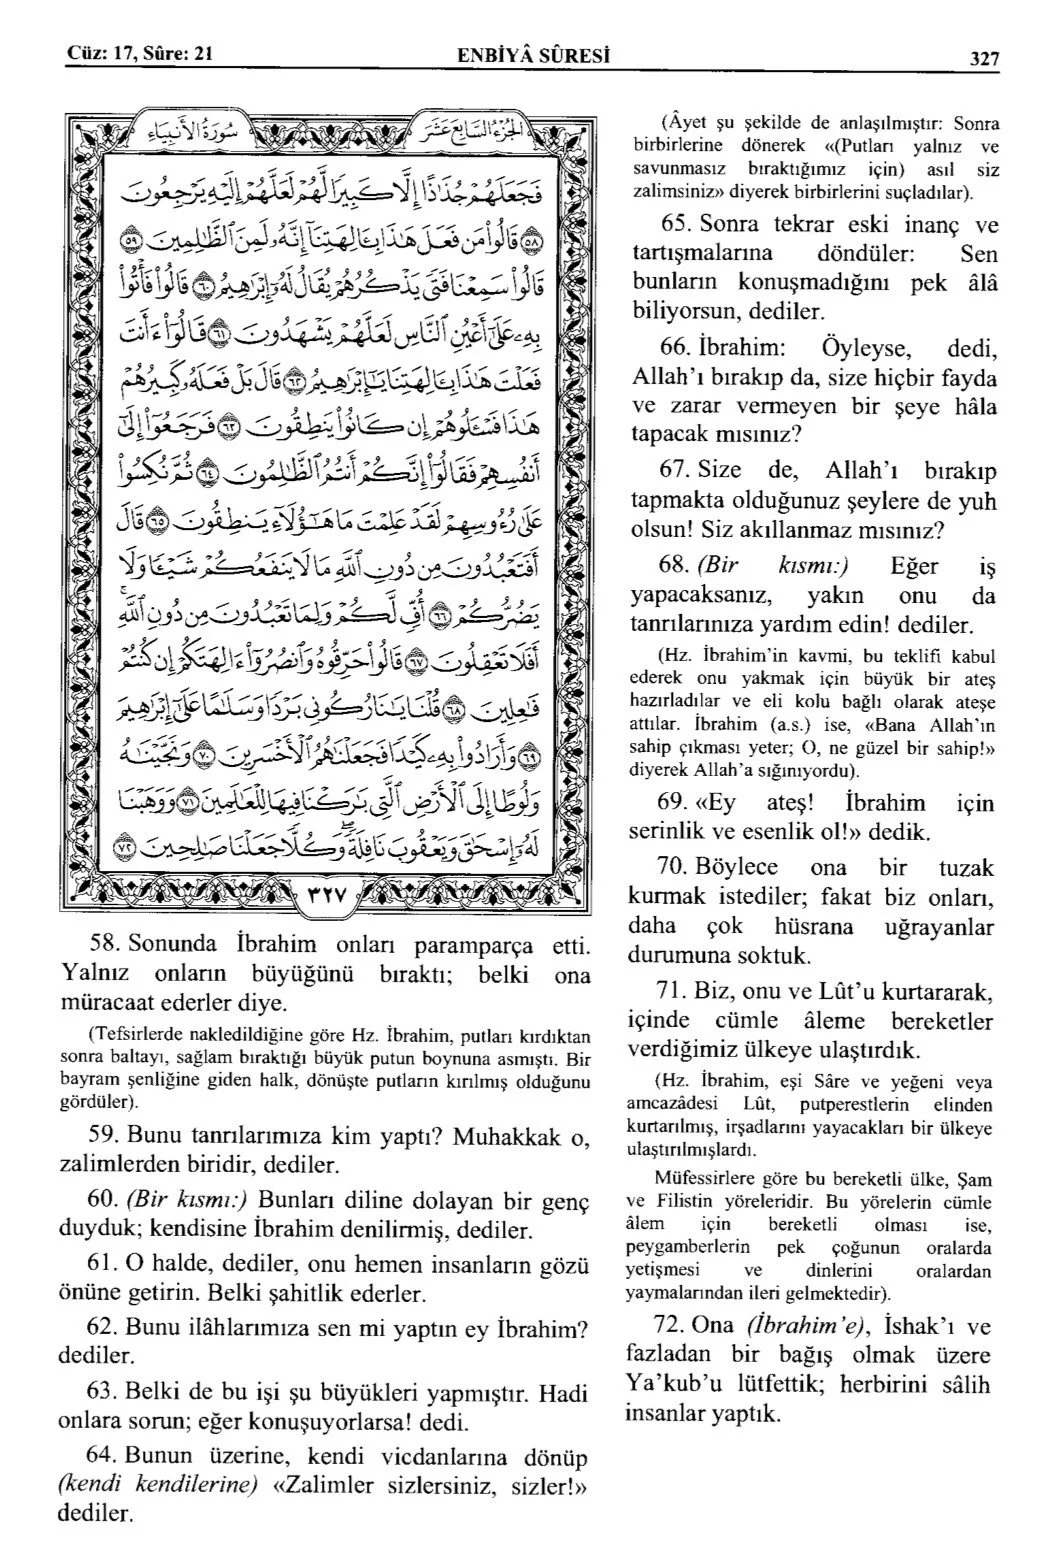 Cüz: 17, Sûre: 21
ENBİYÂ SÛRESİ
327
اَلْجُزْءُ السَّابِعَ عَشَرَ
سُورَةُ الْاَنْبِيَاءِ
فَجَعَلَهُمْ جُذَاذًا اِلَّا كَبِيرًا لَهُمْ لَعَلَّهُمْ اِلَيْهِ يَرْجِعُونَ
﴿٥٨﴾ قَالُوا مَنْ فَعَلَ هٰذَا بِاٰلِهَتِنَا اِنَّهُ لَمِنَ الظَّالِمِينَ ﴿٥٩﴾
قَالُوا سَمِعْنَا فَتًى يَذْكُرُهُمْ يُقَالُ لَهُ اِبْرٰهِيمُ ﴿٦٠﴾ قَالُوا فَأْتُوا
بِهِ عَلٰى اَعْيُنِ النَّاسِ لَعَلَّهُمْ يَشْهَدُونَ ﴿٦١﴾ قَالُوا ءَاَنْتَ
فَعَلْتَ هٰذَا بِاٰلِهَتِنَا يَا اِبْرٰهِيمُ ﴿٦٢﴾ قَالَ بَلْ فَعَلَهُ كَبِيرُهُمْ
هٰذَا فَسْـَٔلُوهُمْ اِنْ كَانُوا يَنْطِقُونَ ﴿٦٣﴾ فَرَجَعُوا اِلٰى
اَنْفُسِهِمْ فَقَالُوا اِنَّكُمْ اَنْتُمُ الظَّالِمُونَ ﴿٦٤﴾ ثُمَّ نُكِسُوا
عَلٰى رُؤُسِهِمْ لَقَدْ عَلِمْتَ مَا هٰٓؤُلَاءِ يَنْطِقُونَ ﴿٦٥﴾ قَالَ
اَفَتَعْبُدُونَ مِنْ دُونِ اللّٰهِ مَا لَا يَنْفَعُكُمْ شَيْـًٔا وَلَا
يَضُرُّكُمْ ﴿٦٦﴾ اُفٍّ لَكُمْ وَلِمَا تَعْبُدُونَ مِنْ دُونِ اللّٰهِ
اَفَلَا تَعْقِلُونَ ﴿٦٧﴾ قَالُوا حَرِّقُوهُ وَانْصُرُوا اٰلِهَتَكُمْ اِنْ كُنْتُمْ
فَاعِلِينَ ﴿٦٨﴾ قُلْنَا يَا نَارُ كُونِي بَرْدًا وَسَلَامًا عَلٰى اِبْرٰهِيمَ
﴿٦٩﴾ وَاَرَادُوا بِهِ كَيْدًا فَجَعَلْنَاهُمُ الْاَخْسَرِينَ ﴿٧٠﴾ وَنَجَّيْنَاهُ
وَلُوطًا اِلَى الْاَرْضِ الَّتِي بَارَكْنَا فِيهَا لِلْعَالَمِينَ ﴿٧١﴾ وَوَهَبْنَا
لَهُ اِسْحٰقَ وَيَعْقُوبَ نَافِلَةً وَكُلًّا جَعَلْنَا صَالِحِينَ ﴿٧٢﴾
٣٢٧
58. Sonunda İbrahim onları paramparça etti.
Yalnız onların büyüğünü bıraktı; belki ona
müracaat ederler diye.
(Tefsirlerde nakledildiğine göre Hz. İbrahim, putları kırdıktan
sonra baltayı, sağlam bıraktığı büyük putun boynuna asmıştı. Bir
bayram şenliğine giden halk, dönüşte putların kırılmış olduğunu
gördüler).
59. Bunu tanrılarımıza kim yaptı? Muhakkak o,
zalimlerden biridir, dediler.
60. (Bir kısmı:) Bunları diline dolayan bir genç
duyduk; kendisine İbrahim denilirmiş, dediler.
61. O halde, dediler, onu hemen insanların gözü
önüne getirin. Belki şahitlik ederler.
62. Bunu ilâhlarımıza sen mi yaptın ey İbrahim?
dediler.
63. Belki de bu işi şu büyükleri yapmıştır. Hadi
onlara sorun; eğer konuşuyorlarsa! dedi.
64. Bunun üzerine, kendi vicdanlarına dönüp
(kendi kendilerine) «Zalimler sizlersiniz, sizler!»
dediler.
(Âyet şu şekilde de anlaşılmıştır: Sonra
birbirlerine dönerek «(Putları yalnız ve
savunmasız bıraktığımız için) asıl siz
zalimsiniz» diyerek birbirlerini suçladılar).
65. Sonra tekrar eski inanç ve
tartışmalarına döndüler: Sen
bunların konuşmadığını pek âlâ
biliyorsun, dediler.
66. İbrahim: Öyleyse, dedi,
Allah'ı bırakıp da, size hiçbir fayda
ve zarar vermeyen bir şeye hâla
tapacak mısınız?
67. Size de, Allah'ı bırakıp
tapmakta olduğunuz şeylere de yuh
olsun! Siz akıllanmaz mısınız?
68. (Bir kısmı:) Eğer iş
yapacaksanız, yakın onu da
tanrılarınıza yardım edin! dediler.
(Hz. İbrahim'in kavmi, bu teklifi kabul
ederek onu yakmak için büyük bir ateş
hazırladılar ve eli kolu bağlı olarak ateşe
attılar. İbrahim (a.s.) ise, «Bana Allah'ın
sahip çıkması yeter; O, ne güzel bir sahip!»
diyerek Allah'a sığınıyordu).
69. «Ey ateş! İbrahim için
serinlik ve esenlik ol!» dedik.
70. Böylece ona bir tuzak
kurmak istediler; fakat biz onları,
daha çok hüsrana uğrayanlar
durumuna soktuk.
71. Biz, onu ve Lût'u kurtararak,
içinde cümle âleme bereketler
verdiğimiz ülkeye ulaştırdık.
(Hz. İbrahim, eşi Sâre ve yeğeni veya
amcazâdesi Lût, putperestlerin elinden
kurtarılmış, irşadlarını yayacakları bir ülkeye
ulaştırılmışlardı.
Müfessirlere göre bu bereketli ülke, Şam
ve Filistin yöreleridir. Bu yörelerin cümle
âlem için bereketli olması ise,
peygamberlerin pek çoğunun oralarda
yetişmesi ve dinlerini oralardan
yaymalarından ileri gelmektedir).
72. Ona (İbrahim'e), İshak'ı ve
fazladan bir bağış olmak üzere
Ya'kub'u lütfettik; herbirini sâlih
insanlar yaptık.